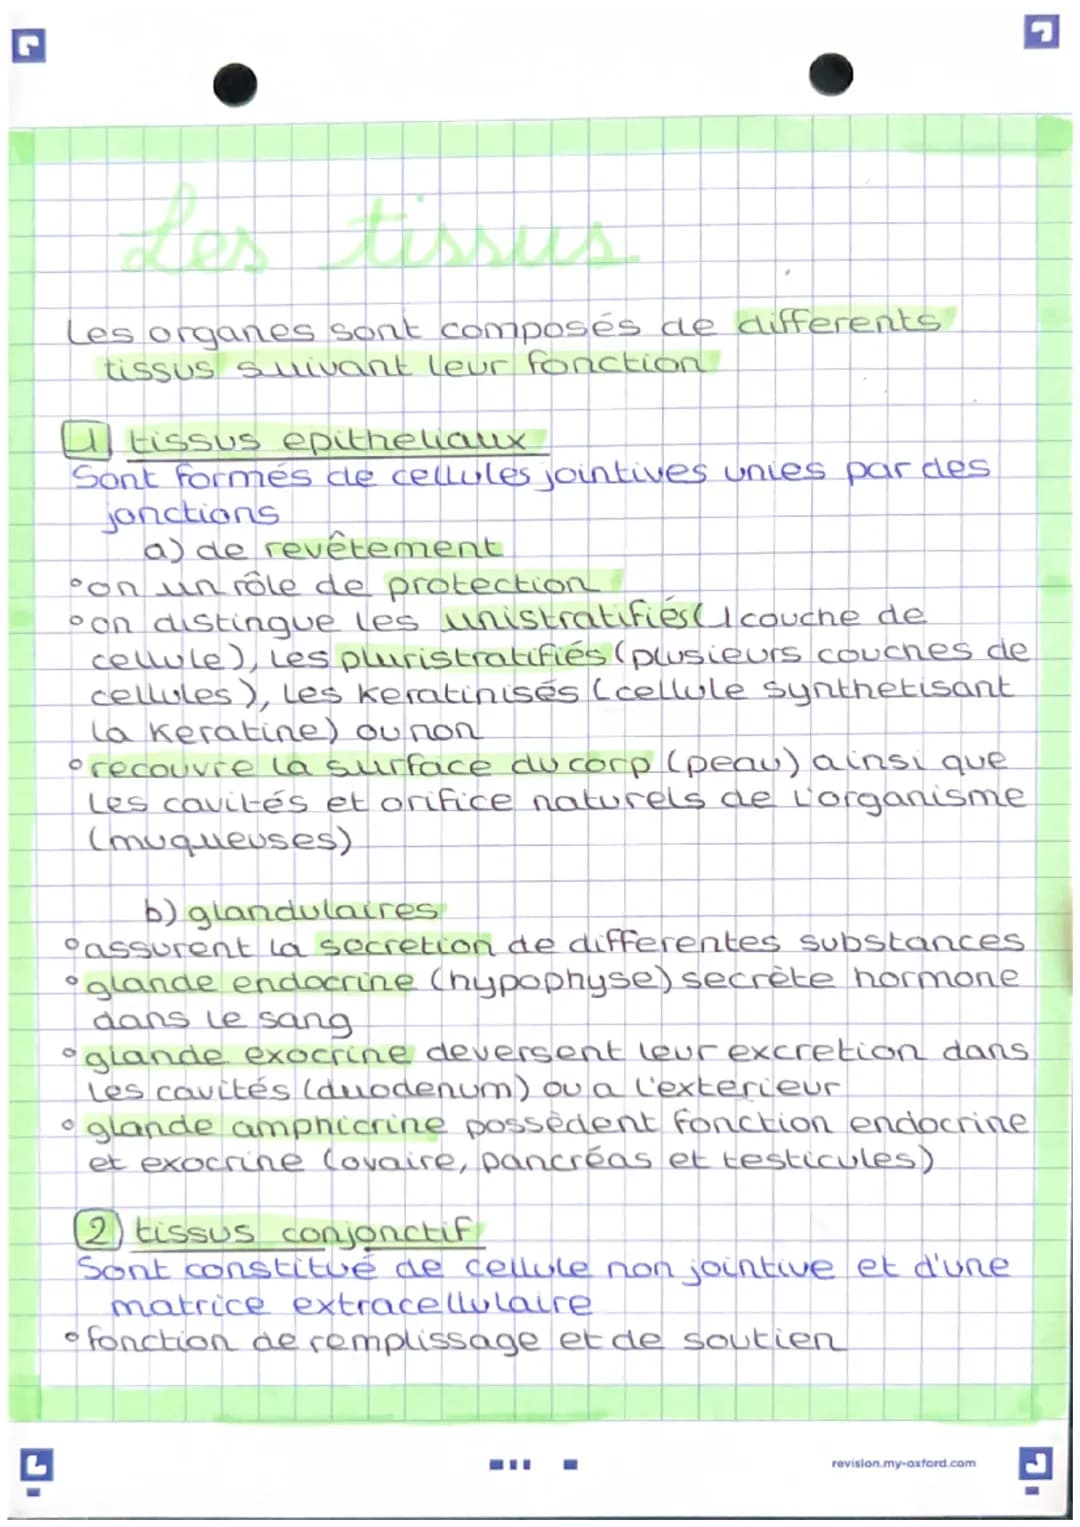 Les tissus
Les organes sont composés de differents
tissus suivant leur fonction
1) tissus epitheliaux
Sont formés de cellules jointives unies par des
jonctions
a) de revêtement
°on un rôle de protection
°on distingue les unistratifiés (1 couche de
cellule), les pluristratifiés (plusieurs couches de
cellules), les keratinisés (cellule synthetisant
la keratine) ou non
°recouvre la surface du corp (peau) ainsi que
les cavités et orifice naturels de l'organisme
(muqueuses)
b) glandulaires
°assurent la secretion de differentes substances
°glande endocrine (hypophyse) secrète hormone
dans le sang
°glande exocrine deversent leur excretion dans
les cavités (duodenum) ou a l'exterieur
°glande amphicrine possèdent fonction endocrine
et exocrine (ovaire, pancréas et testicules)
2) tissus conjonctif
Sont constitué de cellule non jointive et d'une
matrice extracellulaire
°fonction de remplissage et de soutien
revision.my-oxford.com